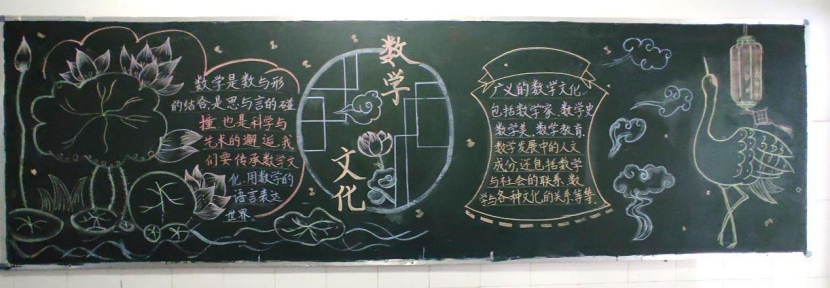 数学是数与形
的结合,是思与言的碰
撞,也是科学与
艺术的邂逅,我
们要传承数学文
化,用数学的
语言表达
世界.
数学
文化
广义的数学文化,
包括数学家、数学史
数学美、数学教育.
数学发展中的人文
成分,还包括数学
与社会的联系、数
学与各种文化的关系等等.